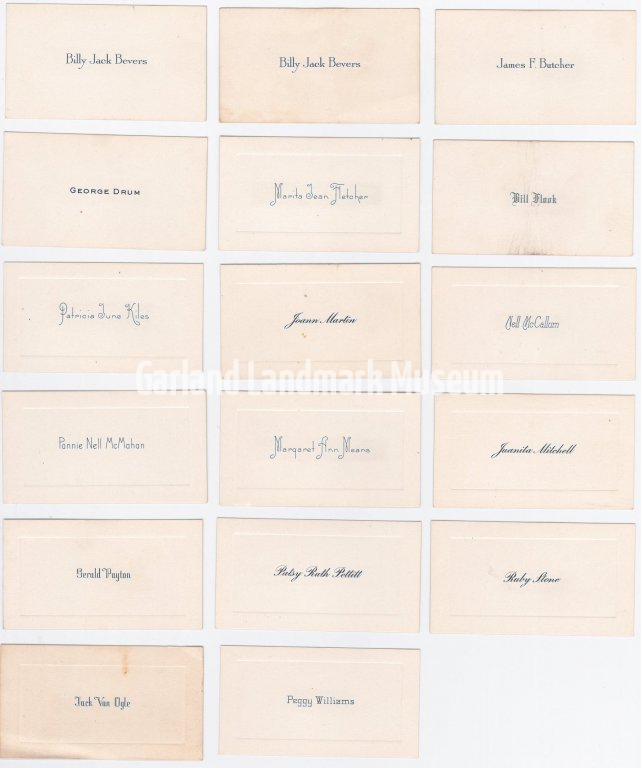 Billy Jack Bevers
Billy Jack Bevers
James F. Butcher
GEORGE DRUM
Marita Jean Fletcher
Bill Flook
Patricia June Kiles
Joann Martin
Nell McCallum
Garland Landmark Museum
Pannie Nell McMahan
Margaret Ann Means
Juanita Mitchell
Gerald Payton
Patsy Ruth Pettitt
Ruby Stone
Jack Van Ogle
Peggy Williams